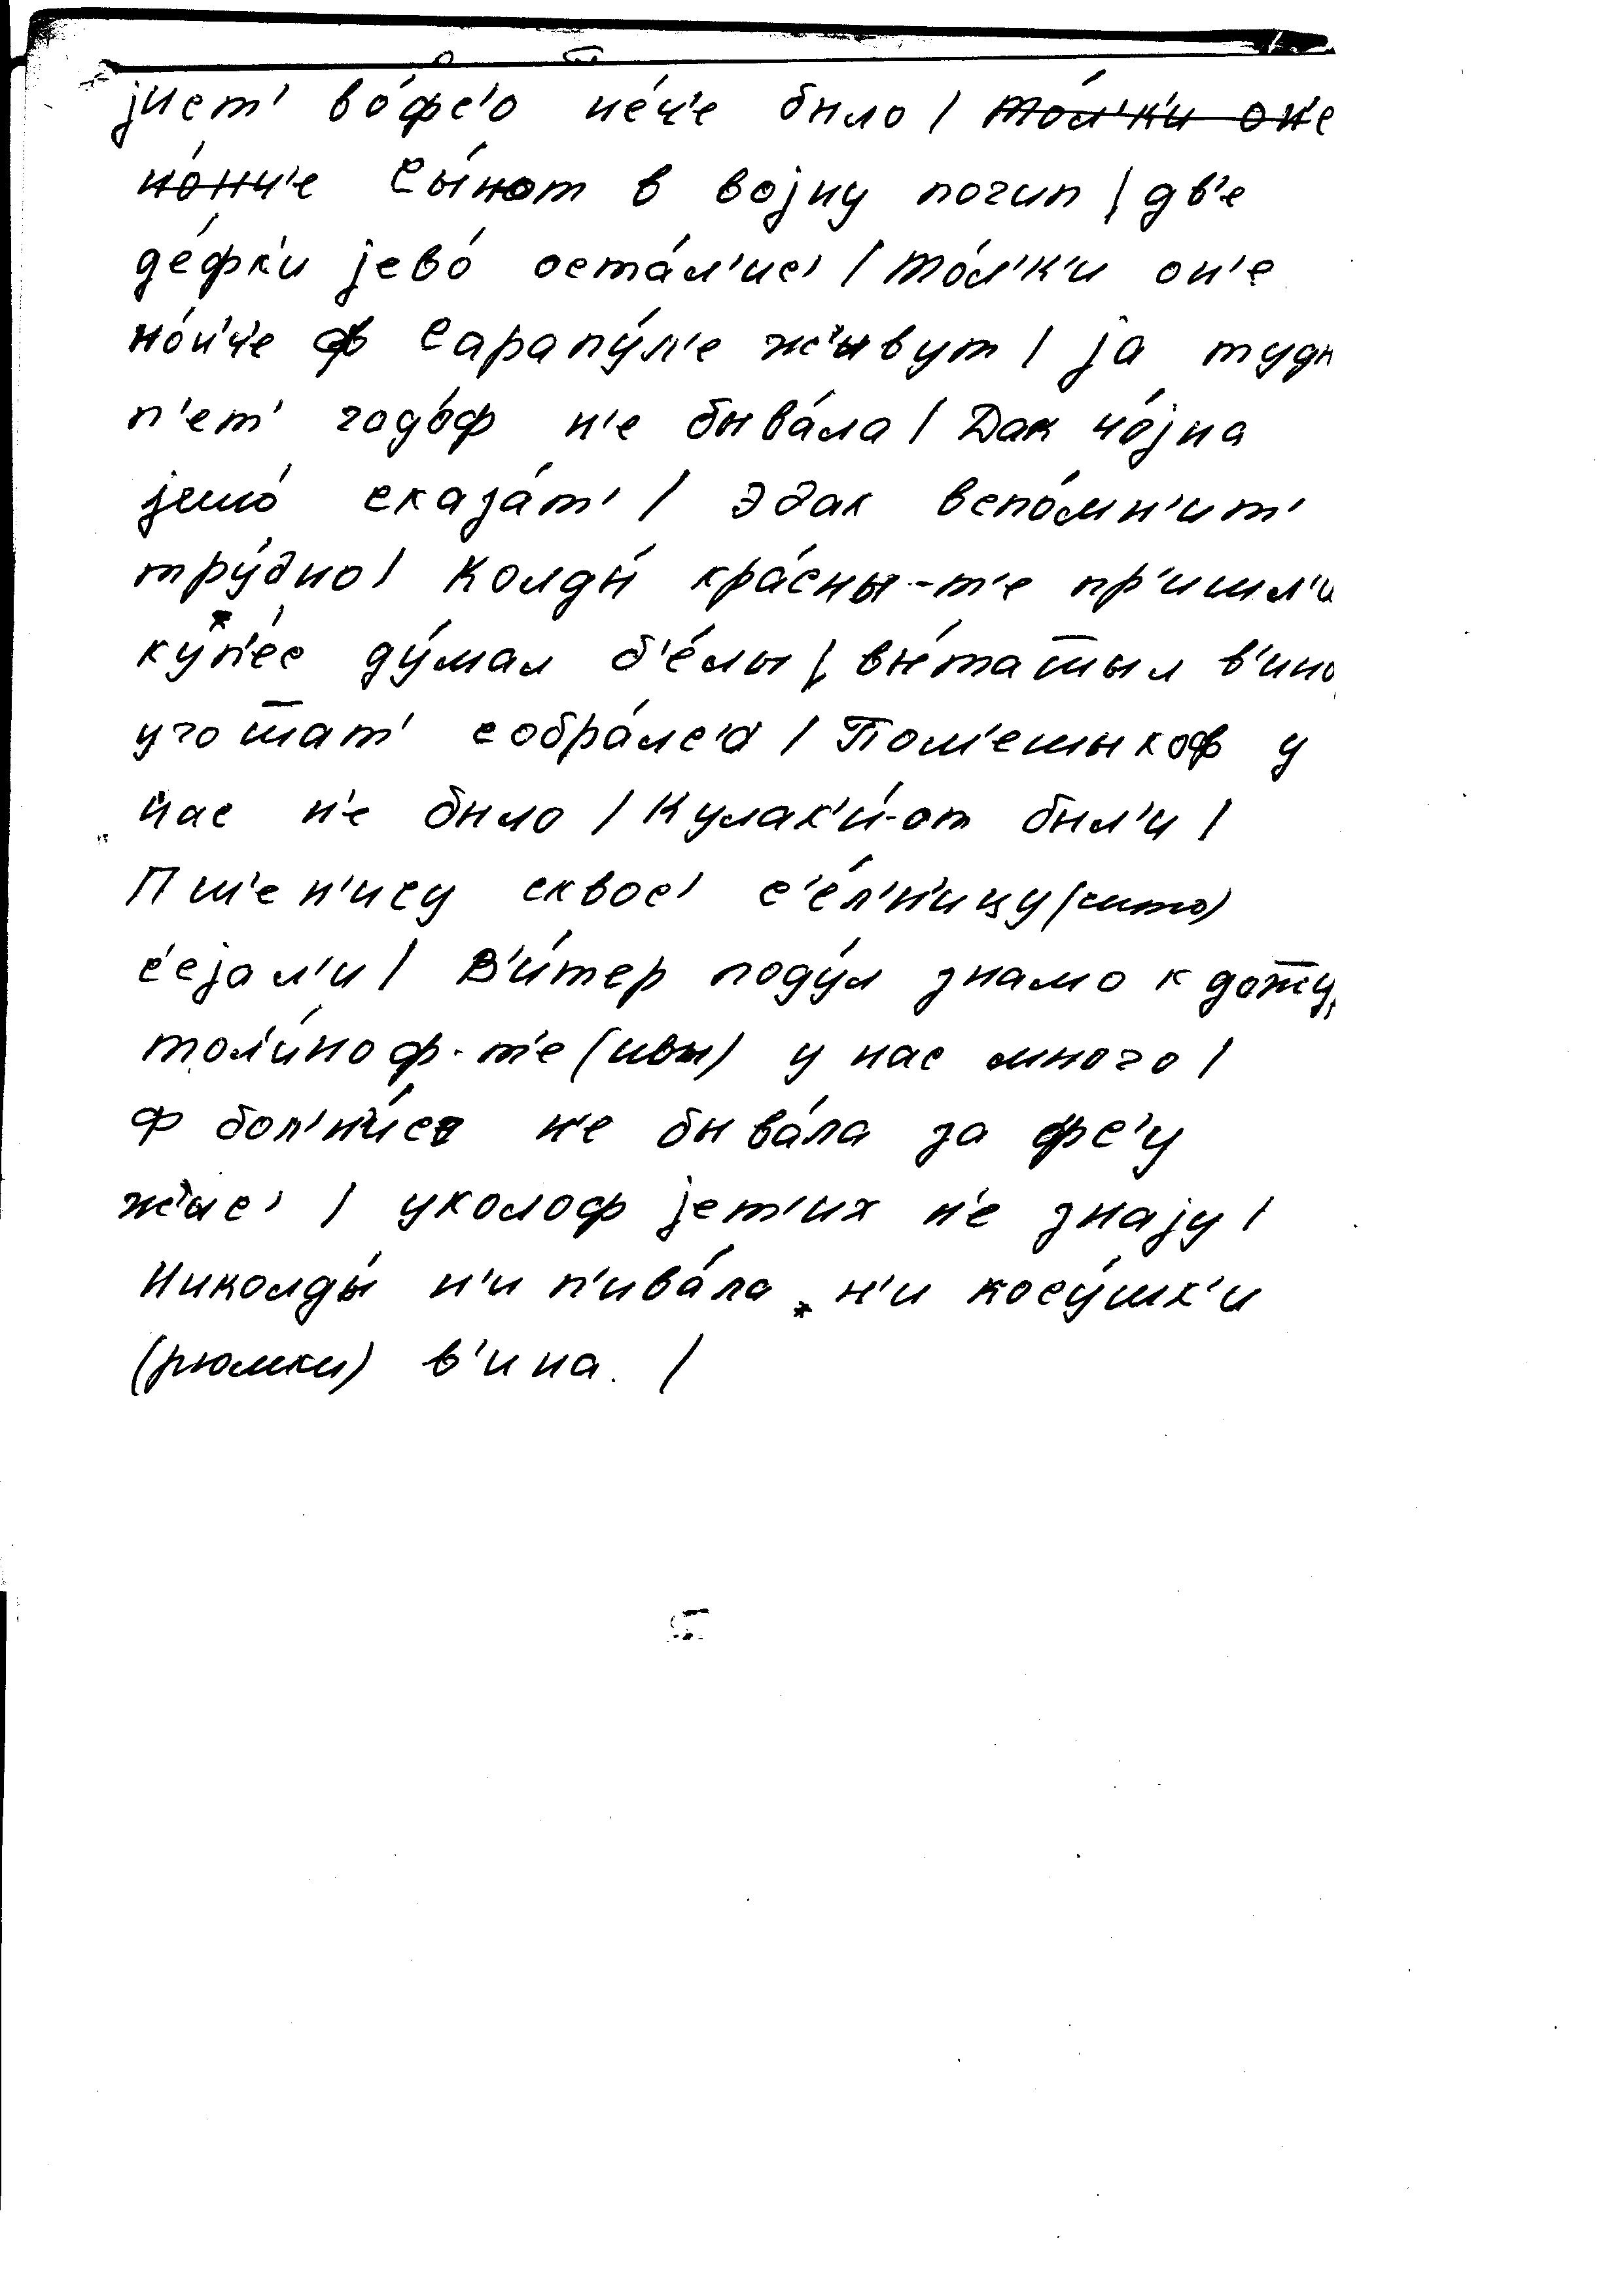 јист' во́фс'о не́ч'е было / то́л'к'и он'е
но́нч'е Сы́нот в војну погип / дв'е
де́фк'и јево́ оста́л'ис' / То́л'к'и он'е
но́н'ч'е ф Сарапу́л'е жывут / ја туды
п'ет' годо́ф н'е быва́ла / Дак чо́јна
јишо́ сказа́т' / Эдак вспо́мн'ит'
тру́дно / Колды́ кра́сны-т'е пр'ишл'и
куп'е́с ду́мал б'е́лы / вы́ташыл в'ино
угошат' собра́лс'а / Пом'ешыкоф у
нас н'е было / Кулак'и́-от был'и /
Пш'ен'ису сквос' с'е́л'н'ицу (сито)
с'ејал'и / В'и́тер поду́л знамо к
тол'и́ноф-т'е (ивы) у нас много /
Ф бол'н'и́су н'е быва́ла за фс'у
жыс' / уколоф јет'их н'е знају /
Николды́ н'и п'ива́ла н'и косу́шк'и
(рюмки) в'ина. /